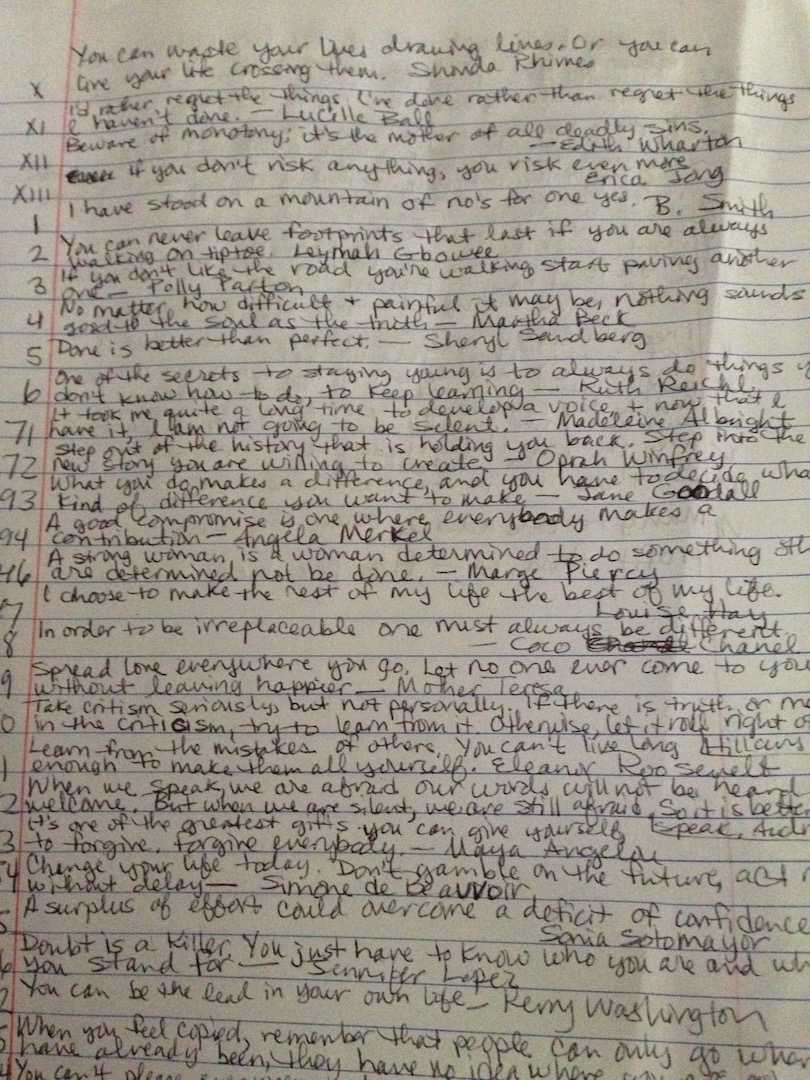 You can waste your lives drawing lines. Or you can
X live your life crossing them. Shonda Rhimes
I'd rather regret the things I've done rather than regret the things
XI I haven't done. — Lucille Ball
Beware of monotony; it's the mother of all deadly sins.
XII — Edith Wharton
if you don't risk anything, you risk even more
XIII Erica Jong
I have stood on a mountain of no's for one yes. B. Smith
1
You can never leave footprints that last if you are always
2 walking on tiptoe. Leymah Gbowee
If you don't like the road you're walking start paving another
3 one — Dolly Parton
No matter how difficult + painful it may be, nothing sounds
4 good to the soul as the truth — Martha Beck
5 Done is better than perfect. — Sheryl Sandberg
One of the secrets to staying young is to always do things
6 don't know how to do, to keep learning — Ruth Reichl
It took me quite a long time to develop a voice + now that I
71 have it, I am not going to be silent. — Madeleine Albright
Step out of the history that is holding you back. Step into the
72 new story you are willing to create. — Oprah Winfrey
What you do makes a difference, and you have to decide wha
93 kind of difference you want to make — Jane Goodall
A good compromise is one where everybody makes a
94 contribution — Angela Merkel
A strong woman is a woman determined to do something oth
46 are determined not be done. — Marge Piercy
I choose to make the rest of my life the best of my life.
7 Louise Hay
In order to be irreplaceable one must always be different
8 — Coco Chanel
Spread love everywhere you go. Let no one ever come to you
9 without leaving happier — Mother Teresa
Take critism seriously, but not personally. If there is truth or me
0 in the criticism, try to learn from it. Otherwise, let it roll right of
Learn from the mistakes of others. You can't live long Hillary
1 enough to make them all yourself. Eleanor Roosevelt
When we speak, we are afraid our words will not be heard
2 welcome. But when we are silent, we are still afraid. So it is bette
It's one of the greatest gifts you can give yourself Speak, Audr
3 to forgive. Forgive everybody. — Maya Angelou
Change your life today. Don't gamble on the future, act
4 without delay — Simone de Beauvoir
A surplus of effort could overcome a deficit of confidence
Sonia Sotomayor
Doubt is a killer. You just have to know who you are and wh
6 you stand for — Jennifer Lopez
2 You can be the lead in your own life — Kerry Washington
When you feel copied, remember that people can only go wher
have already been, they have no idea where
You can't please